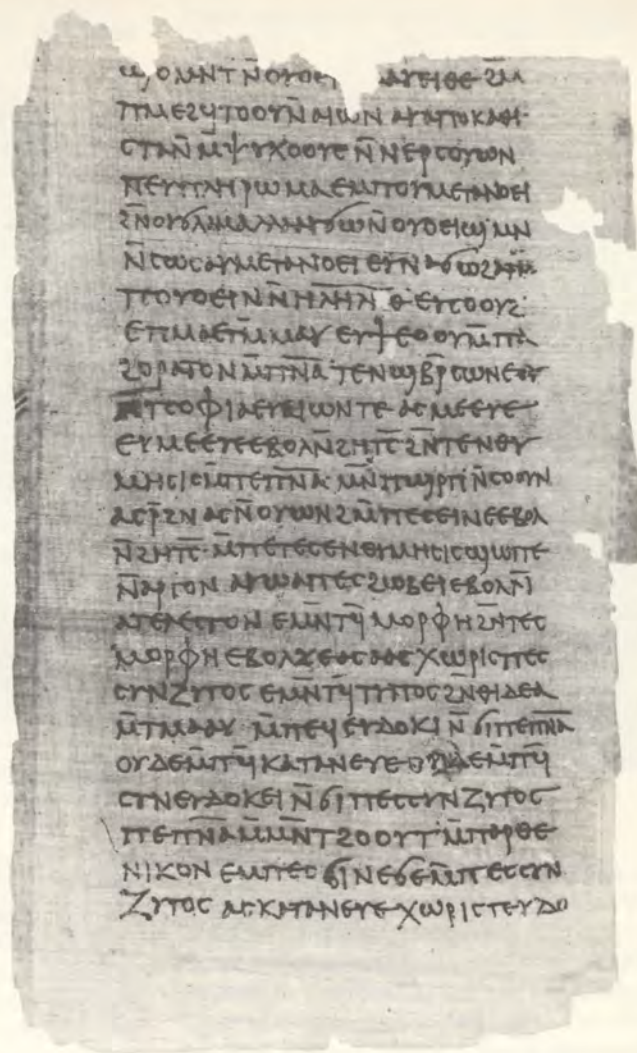 ϣⲟⲙⲛⲧ ⲛ̄ⲟⲩⲟⲉⲓ ϩⲙ
ⲡⲙⲉϩϥⲧⲟⲟⲩ ⲛ̄ⲁⲓⲱⲛ ⲁⲩⲁⲡⲟⲕⲁⲑⲓ
ⲥⲧⲁ ⲛ̄ⲙ̄ⲯⲩⲭⲟⲟⲩⲉ ⲛ̄ⲛⲉⲣⲥⲟⲩⲱⲛ
ⲡⲉⲩⲡⲗⲏⲣⲱⲙⲁ ⲉⲙⲡⲟⲩⲙⲉⲧⲁⲛⲟⲉⲓ
ϩⲛ̄ⲟⲩϭⲗⲁⲙ ⲁⲗⲗⲁ ⲁⲩϭⲱ ⲛ̄ⲟⲩⲟⲉⲓϣ ⲙⲛ
ⲛ̄ⲥⲱⲥ ⲁⲩⲙⲉⲧⲁⲛⲟⲉⲓ ⲉⲩⲛⲁϭⲱ ϩⲁⲧⲙ
ⲡⲟⲩⲟⲉⲓⲛ ⲛ̄ⲏⲗⲏⲗⲏⲑ ⲉⲩⲥⲟⲟⲩϩ
ⲉⲡⲙⲁ ⲉⲧⲙ̄ⲙⲁⲩ ⲉⲩϯ ⲉⲟⲟⲩ ⲙ̄ⲡⲁ
ϩⲟⲣⲁⲧⲟⲛ ⲙ̄ⲡⲛ̄ⲁ̄ ⲧⲉⲛϣⲃⲣ̄ⲥⲱⲛⲉ ϭⲉ
ⲧⲥⲟⲫⲓⲁ ⲉⲩⲉⲱⲛ ⲧⲉ ⲁⲥⲙⲉⲉⲩⲉ
ⲉⲩⲙⲉⲉⲩⲉ ⲉⲃⲟⲗ ⲛ̄ϩⲏⲧⲥ̄ ϩⲛ̄ⲧⲉⲛⲑⲩ
ⲙⲏⲥⲓⲥ ⲙ̄ⲡⲉⲡⲛ̄ⲁ̄ ⲙⲛ̄ⲡϣⲣⲡ ⲛ̄ⲥⲟⲟⲩⲛ
ⲁⲥⲣ̄ϩⲛⲁⲥ ⲛ̄ⲟⲩⲱⲛϩ ⲙ̄ⲡⲉⲥⲉⲓⲛⲉ ⲉⲃⲟⲗ
ⲛ̄ϩⲏⲧⲥ̄ ⲙ̄ⲡⲉⲧⲉⲥⲉⲛⲑⲩⲙⲏⲥⲓⲥ ϣⲱⲡⲉ
ⲛ̄ⲁⲣⲅⲟⲛ ⲁⲩⲱ ⲁⲡⲉⲥϩⲱⲃ ⲉⲓ ⲉⲃⲟⲗ ⲛ̄
ⲁⲧⲉⲗⲉⲥⲧⲟⲛ ⲉⲙⲛ̄ⲧϥ̄ ⲙⲟⲣⲫⲏ ϩⲛ̄ⲧⲉⲥ
ⲙⲟⲣⲫⲏ ⲉⲃⲟⲗ ϫⲉ ⲁⲥⲁⲁⲥ ⲭⲱⲣⲓⲥ ⲡⲉⲥ
ⲥⲩⲛⲍⲩⲅⲟⲥ ⲉⲙⲛ̄ⲧϥ̄ ⲧⲩⲡⲟⲥ ϩⲛ̄ⲑⲓⲇⲉⲁ
ⲛ̄ⲧⲙⲁⲁⲩ ⲙ̄ⲡⲉϥⲉⲩⲇⲟⲕⲓ ⲛ̄ϭⲓ ⲡⲉⲡⲛ̄ⲁ̄
ⲟⲩⲇⲉ ⲙ̄ⲡϥ̄ⲕⲁⲧⲁⲛⲉⲩⲉ ⲟⲩⲇⲉ ⲙ̄ⲡϥ̄
ⲥⲩⲛⲉⲩⲇⲟⲕⲉⲓ ⲛ̄ϭⲓ ⲡⲉⲥⲥⲩⲛⲍⲩⲅⲟⲥ
ⲡⲉⲡⲛ̄ⲁ̄ ⲙ̄ⲙⲛ̄ⲧϩⲟⲟⲩⲧ ⲙ̄ⲡⲁⲣⲑⲉ
ⲛⲓⲕⲟⲛ ⲉⲙⲡⲉⲥϭⲓⲛⲉ ϭⲉ ⲙ̄ⲡⲉⲥⲥⲩⲛ
ⲍⲩⲅⲟⲥ ⲁⲥⲕⲁⲧⲁⲛⲉⲩⲉ ⲭⲱⲣⲓⲥ ⲧⲉⲩⲇⲟ